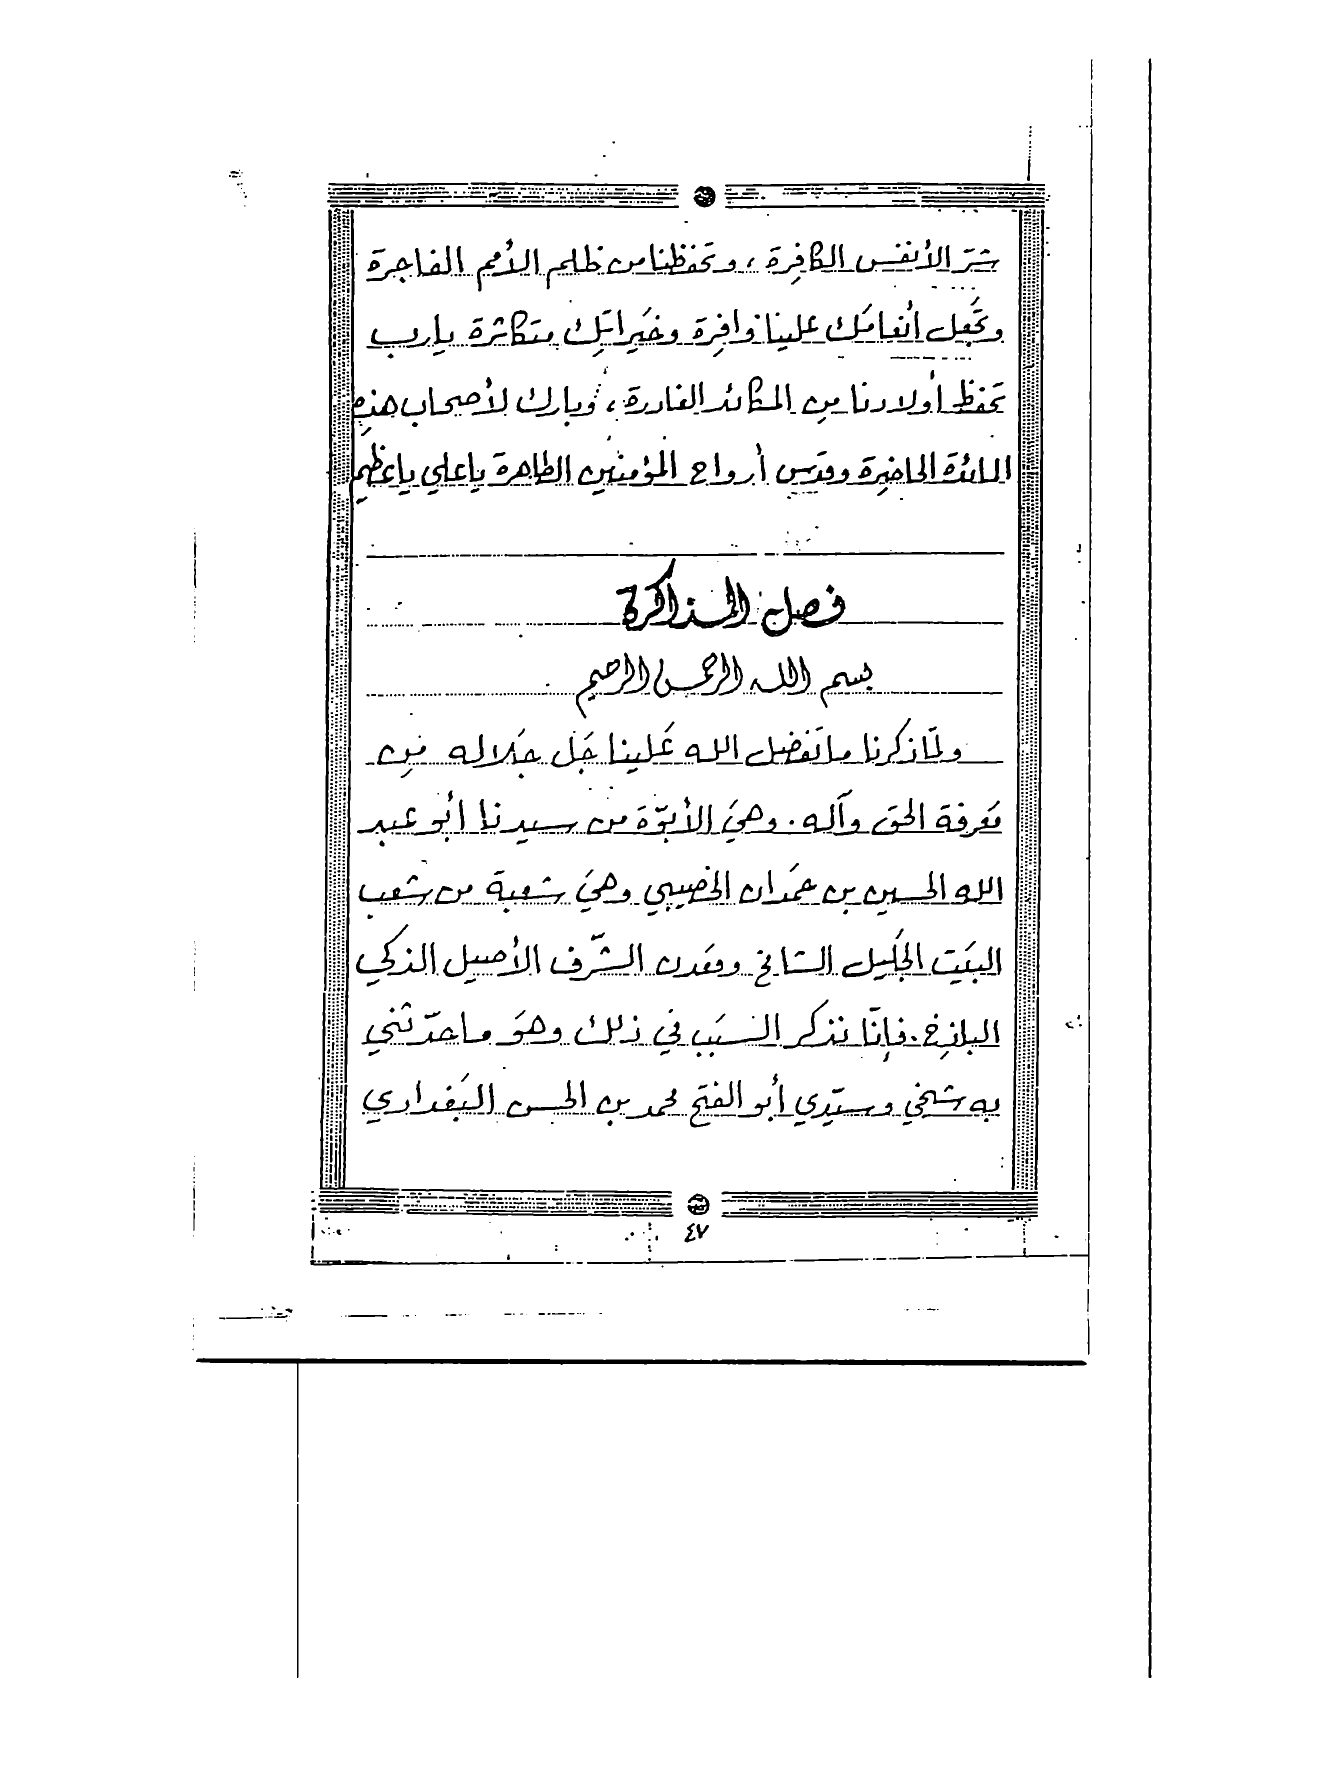 شرّ الأنفس الكافِرة ، وتحفظنا من ظلم الأمم الفاجرة
وتجَعل أنعامَك علينا وافِرة وخَيراتِك متكاثرة يارب
تحفظ أولادنا مِن المكائد الغادرة ، وبارك لأصحاب هذِه
المائدة الحاضِرة وقدّس أرواح المؤمنين الطاهرة ياعلي ياعظيم
فصل المذاكرة
بسم الله الرحمن الرحيم
ولمّا ذكرنا ما تَفضل الله عَلينا جَل جَلاله مِن
مَعرفة الحق وآله . وهيَ الأبوّة من سيدنا أبو عَبد
الله الحسين بن حمَدان الخصيبي وهيَ شعبة من شعب
البَيت الجَليل الشامخ ومَعدن الشّرف الأصيل الذكي
الباذِخ . فإنّا نذكر السَبَب في ذلك وهوَ ما حدّثني
به شيخي وسيّدي أبو الفتح محمد بن الحسن البَغدادي
٤٧